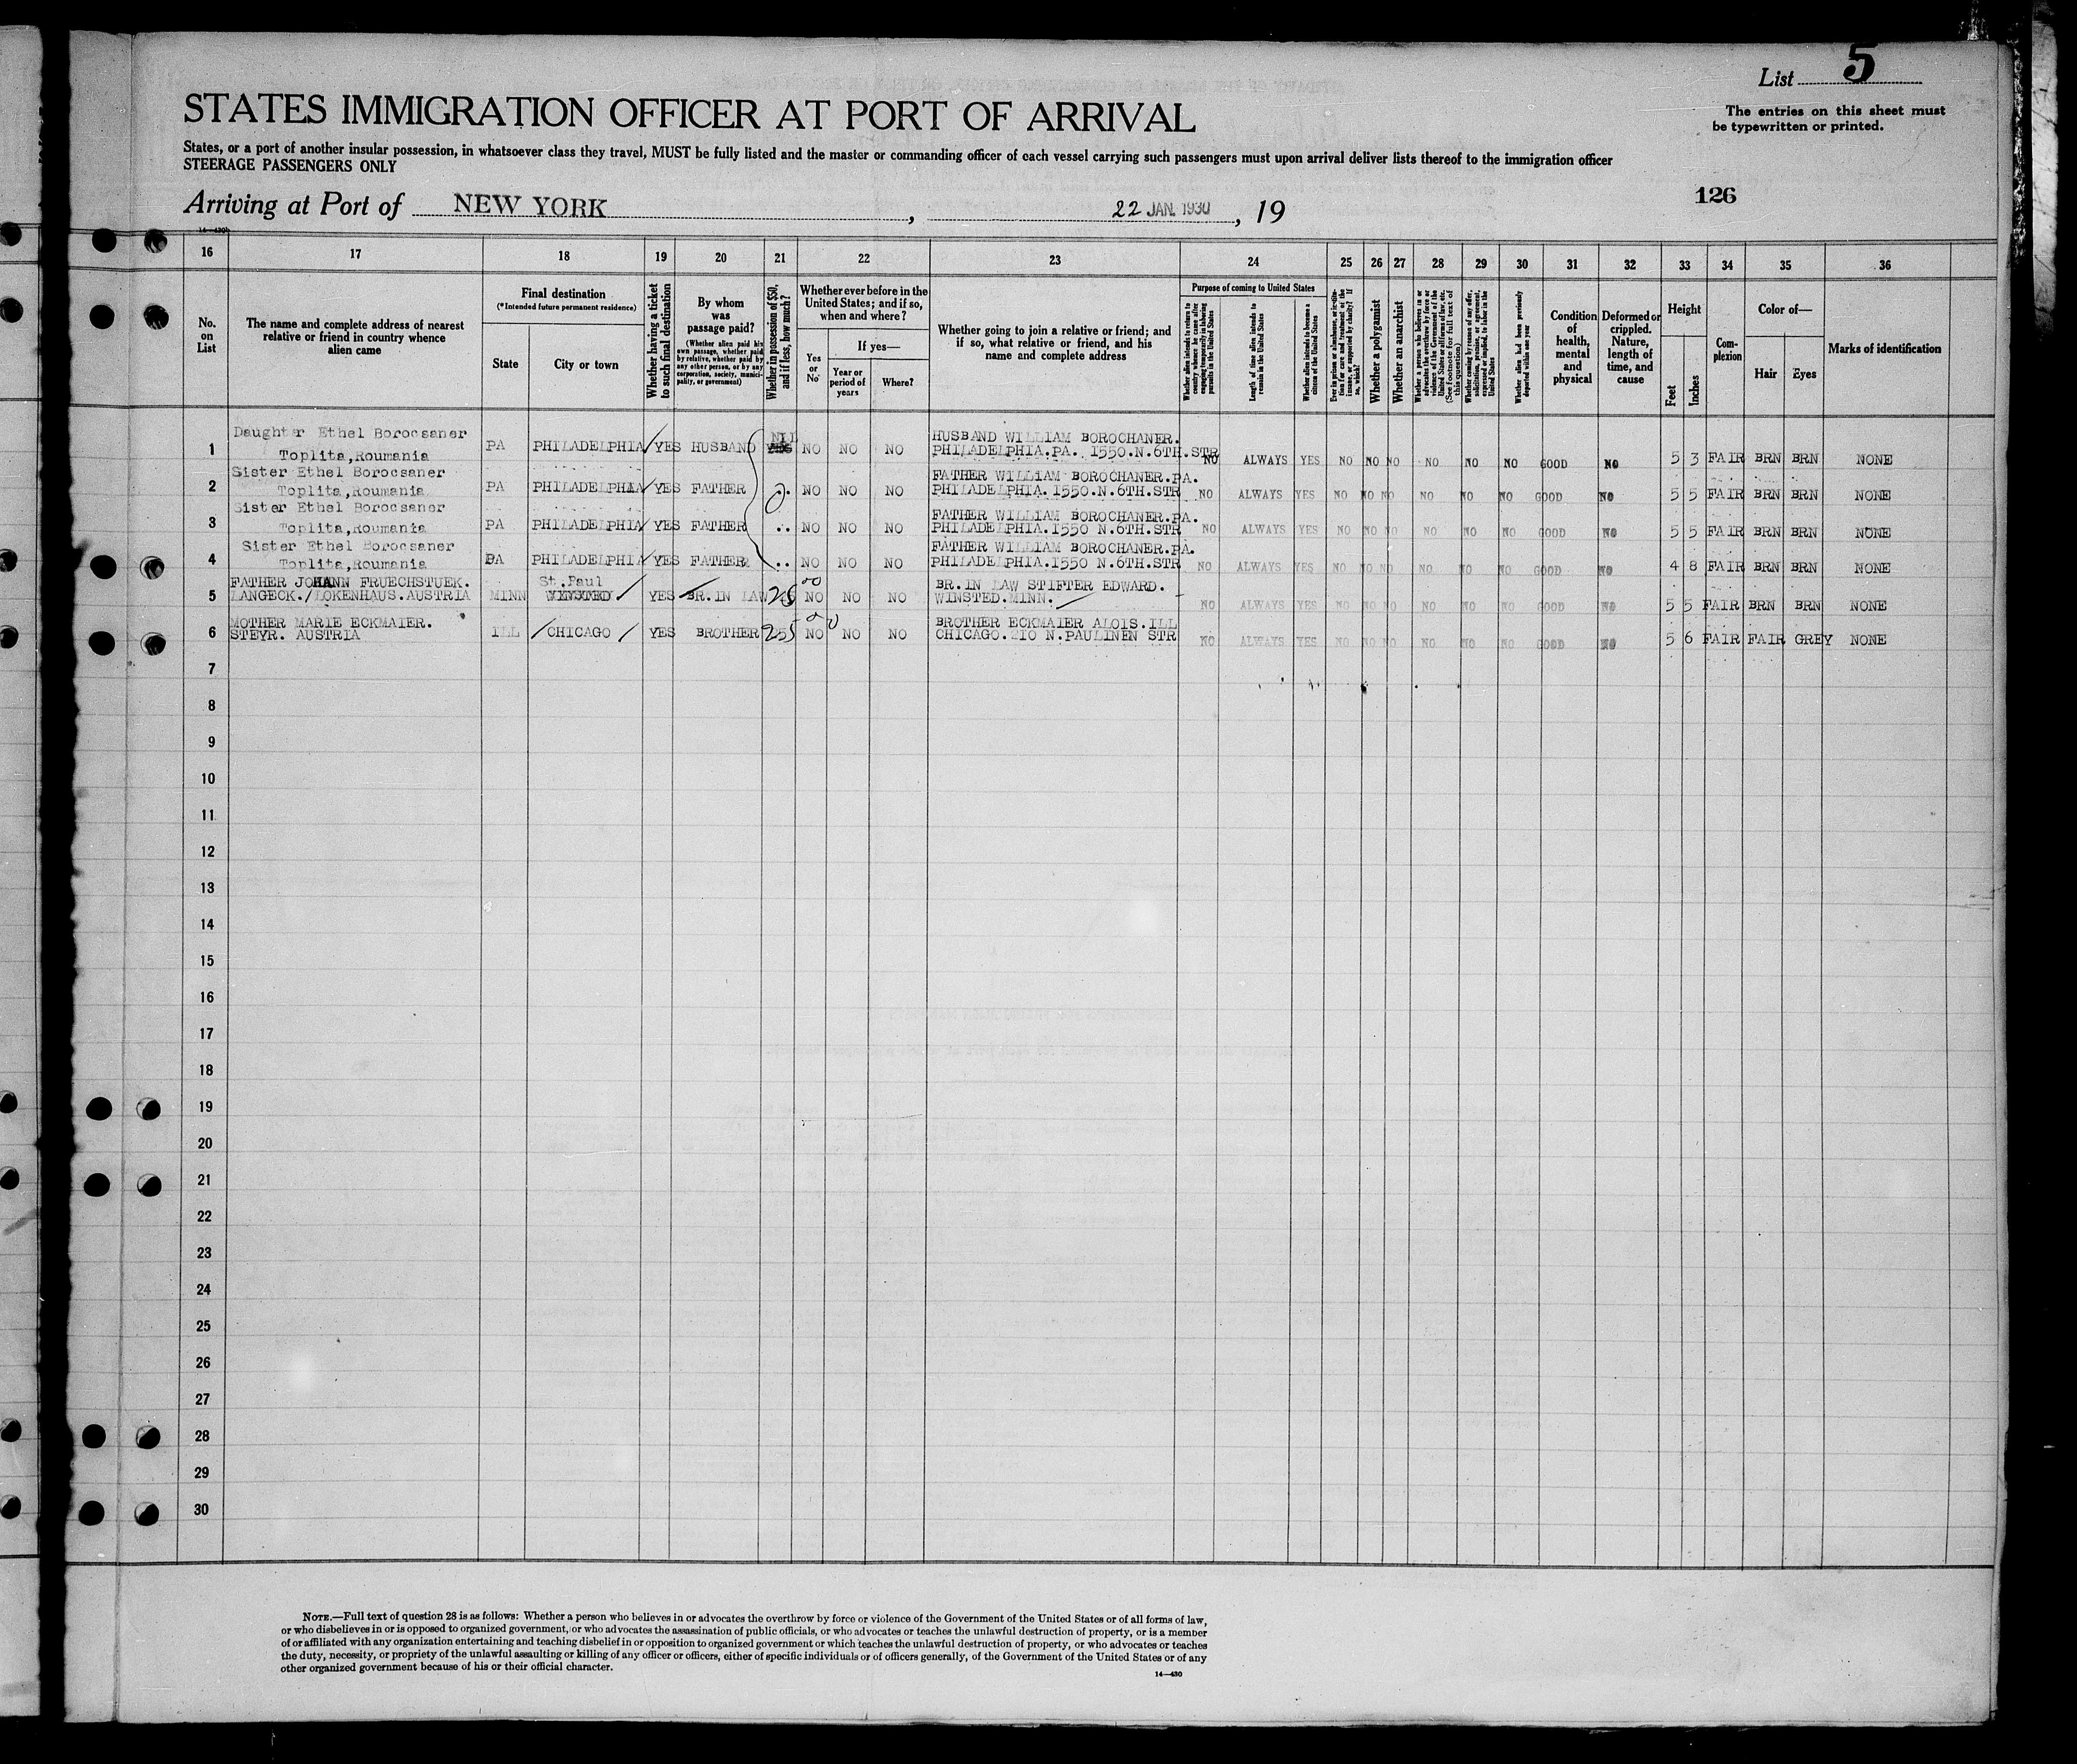 List 5
STATES IMMIGRATION OFFICER AT PORT OF ARRIVAL
The entries on this sheet must
be typewritten or printed.
States, or a port of another insular possession, in whatsoever class they travel, MUST be fully listed and the master or commanding officer of each vessel carrying such passengers must upon arrival deliver lists thereof to the immigration officer
STEERAGE PASSENGERS ONLY
126
Arriving at Port of NEW YORK , 22 JAN. 1930 , 19
16 17 18 19 20 21 22 23 24 25 26 27 28 29 30 31 32 33 34 35 36
No. on List
The name and complete address of nearest
relative or friend in country whence
alien came
Final destination
(*Intended future permanent residence)
State
City or town
Whether having a ticket
to such final destination
By whom
was
passage paid?
(Whether alien paid his
own passage, whether paid
by relative, whether paid by
any other person, or by any
corporation, society, munici-
pality, or government)
Whether in possession of $50,
and if less, how much?
Whether ever before in the
United States; and if so,
when and where?
Yes
or
No
If yes—
Year or
period of
years
Where?
Whether going to join a relative or friend; and
if so, what relative or friend, and his
name and complete address
Purpose of coming to United States
Whether alien intends to return to
country whence he came after
engaging temporarily in laboring
pursuits in the United States
Length of time alien intends to
remain in the United States
Whether alien intends to become a
citizen of the United States
Whether a polygamist
Whether an anarchist
Whether alien had been previously
deported within one year
Condition
of
health,
mental
and
physical
Deformed or
crippled.
Nature,
length of
time, and
cause
Height
Feet
Inches
Com-
plexion
Color of—
Hair
Eyes
Marks of identification
1 Daughter Ethel Borocsaner
Toplita,Roumania PA PHILADELPHIA YES HUSBAND NIL NO NO NO HUSBAND WILLIAM BOROCHANER.
PHILADELPHIA.PA. 1550.N.6TH.STR NO ALWAYS YES NO NO NO NO NO NO GOOD NO 5 3 FAIR BRN BRN NONE
2 Sister Ethel Borocsaner
Toplita,Roumania PA PHILADELPHIA YES FATHER NO NO NO FATHER WILLIAM BOROCHANER.PA.
PHILADELPHIA.1550.N.6TH.STR NO ALWAYS YES NO NO NO NO NO NO GOOD NO 5 5 FAIR BRN BRN NONE
3 Sister Ethel Borocsaner
Toplita,Roumania PA PHILADELPHIA YES FATHER .. NO NO NO FATHER WILLIAM BOROCHANER.PA.
PHILADELPHIA.1550 N.6TH.STR NO ALWAYS YES NO NO NO NO NO NO GOOD NO 5 5 FAIR BRN BRN NONE
4 Sister Ethel Borocsaner
Toplita,Roumania PA PHILADELPHIA YES FATHER .. NO NO NO FATHER WILLIAM BOROCHANER.PA.
PHILADELPHIA.1550 N.6TH.STR NO ALWAYS YES NO NO NO NO NO NO GOOD NO 4 8 FAIR BRN BRN NONE
5 FATHER JOHANN FRUECHSTUEK.
LANGECK./LOKENHAUS.AUSTRIA MINN St.Paul WINSTED YES BR.IN LAW 25 00 NO NO NO BR.IN LAW STIFTER EDWARD.
WINSTED.MINN. NO ALWAYS YES NO NO NO NO NO NO GOOD NO 5 5 FAIR BRN BRN NONE
6 MOTHER MARIE ECKMAIER.
STEYR. AUSTRIA ILL CHICAGO YES BROTHER 25 00 NO NO NO BROTHER ECKMAIER ALOIS.ILL
CHICAGO.210 N.PAULINEN STR NO ALWAYS YES NO NO NO NO NO NO GOOD NO 5 6 FAIR FAIR GREY NONE
7
8
9
10
11
12
13
14
15
16
17
18
19
20
21
22
23
24
25
26
27
28
29
30
NOTE.—Full text of question 28 is as follows: Whether a person who believes in or advocates the overthrow by force or violence of the Government of the United States or of all forms of law,
or who disbelieves in or is opposed to organized government, or who advocates the assassination of public officials, or who advocates or teaches the unlawful destruction of property, or is a member
of or affiliated with any organization entertaining and teaching disbelief in or opposition to organized government or which teaches the unlawful destruction of property, or who advocates or teaches
the duty, necessity, or propriety of the unlawful assaulting or killing of any officer or officers, either of specific individuals or of officers generally, of the Government of the United States or of any
other organized government because of his or their official character.
14—430